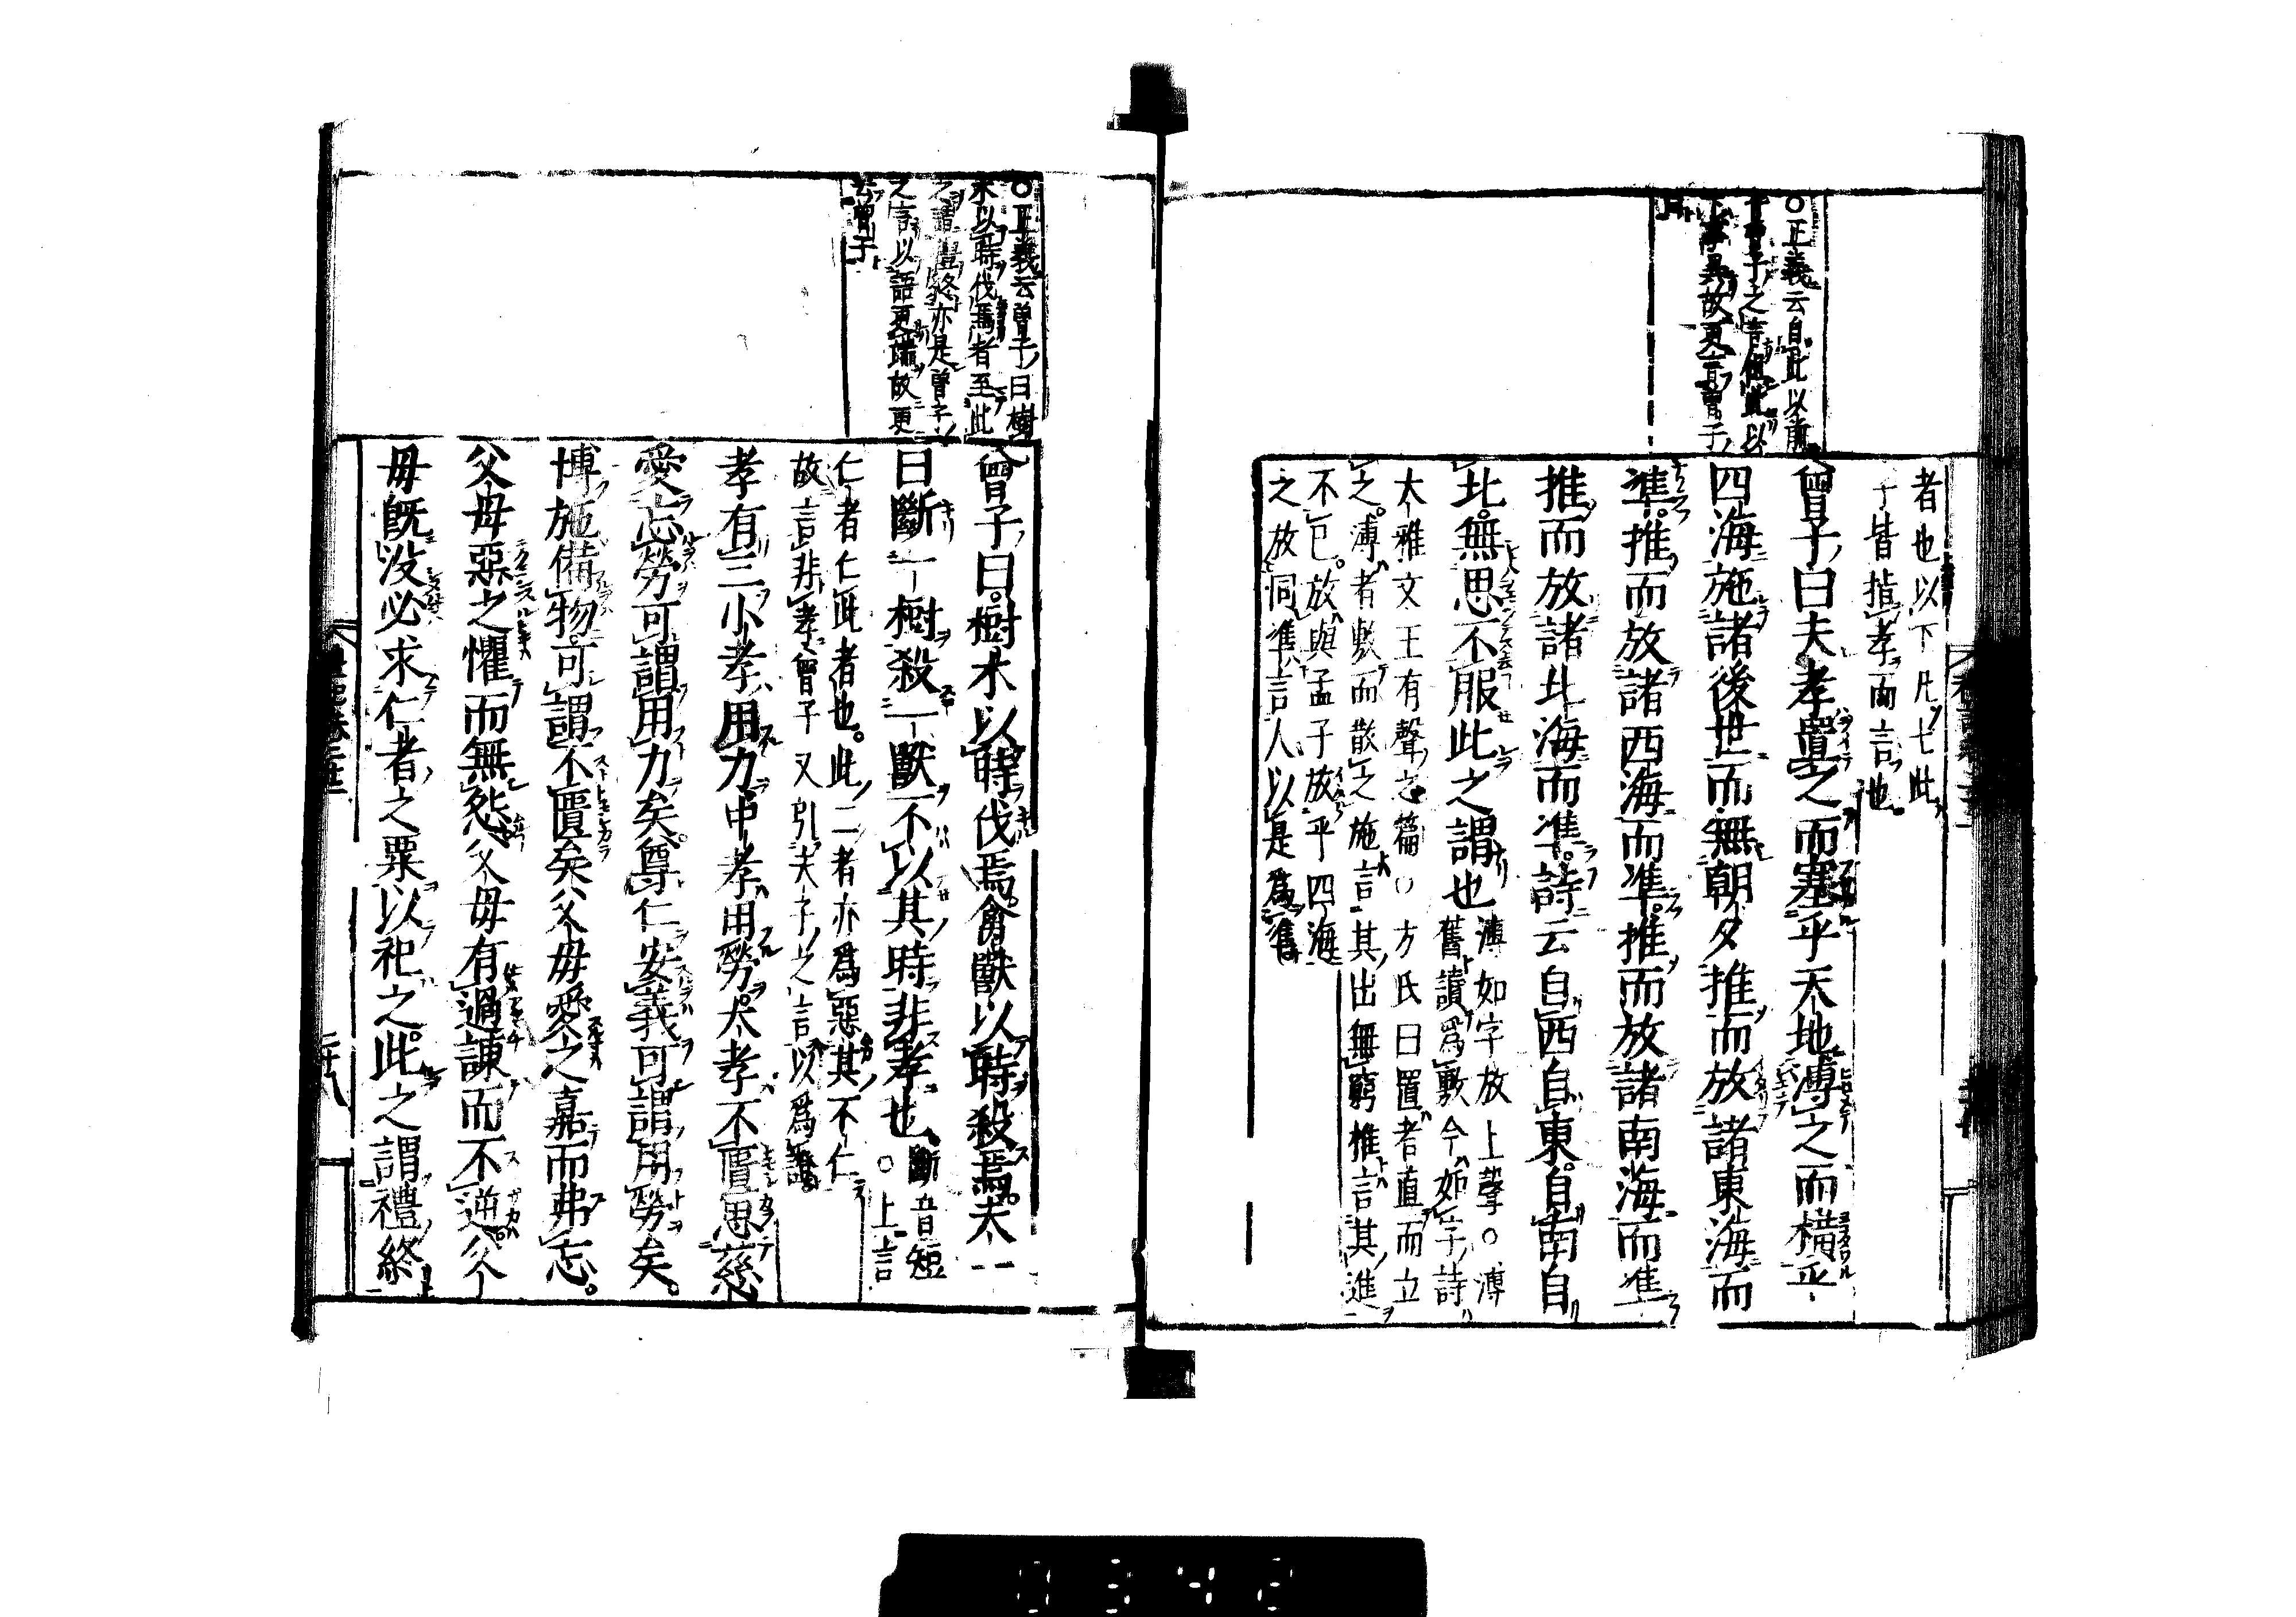 ○正義云自此以前
孝異故更言曾子
者也以下凡七此
子皆指孝而言也
曾子曰夫孝置之而塞乎天地溥之而橫乎
四海施諸後世而無朝夕推而放諸東海而
準推而放諸西海而準推而放諸南海而準
推而放諸北海而準詩云自西自東自南自
北無思不服此之謂也
溥如字放上聲○溥
舊讀爲敷今如字詩
大雅文王有聲之篇○方氏曰置者直而立
之溥者敷而散之施言其出無窮推言其進
不已放與孟子放乎四海
之放同準言人以是爲準
○正義云曾子曰樹
木以時伐焉者至此
之謂禮終亦是曾子
之言以語更端故更
云曾子
曾子曰樹木以時伐焉禽獸以時殺焉夫子
曰斷一樹殺一獸不以其時非孝也
斷音短
○上言
仁者仁此者也此二者亦爲惡其不仁
故言非孝曾子又引夫子之言以爲證
孝有三小孝用力中孝用勞大孝不匱思慈
愛忘勞可謂用力矣尊仁安義可謂用勞矣
博施備物可謂不匱矣父母愛之嘉而弗忘
父母惡之懼而無怨父母有過諫而不逆父
母既没必求仁者之粟以祀之此之謂禮終